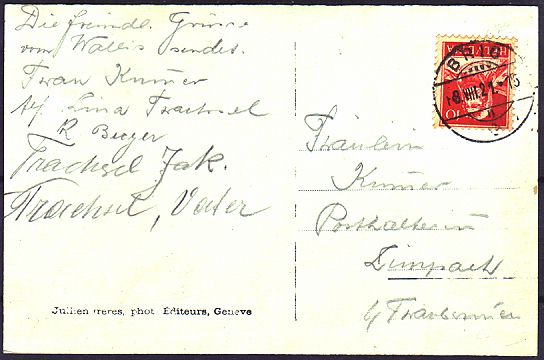 Die freindl. Grüsse
vom Wallis sendet.
Frau Kummer
Lina Trachsel
R Berger
Trachsel Jak.
Trachsel, Vater
Jullien freres, phot Éditeurs, Geneve
HELVETIA
BRIG
-8.VIII.21.-15
10
Fräulein
Kummer
Posthalterin
Limpach
b/ Fraubrunnen